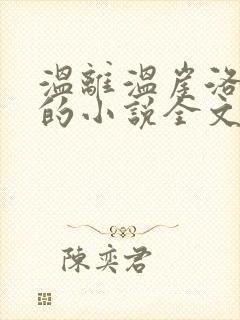 溫離溫崖洛
的小說全文
陳奕君